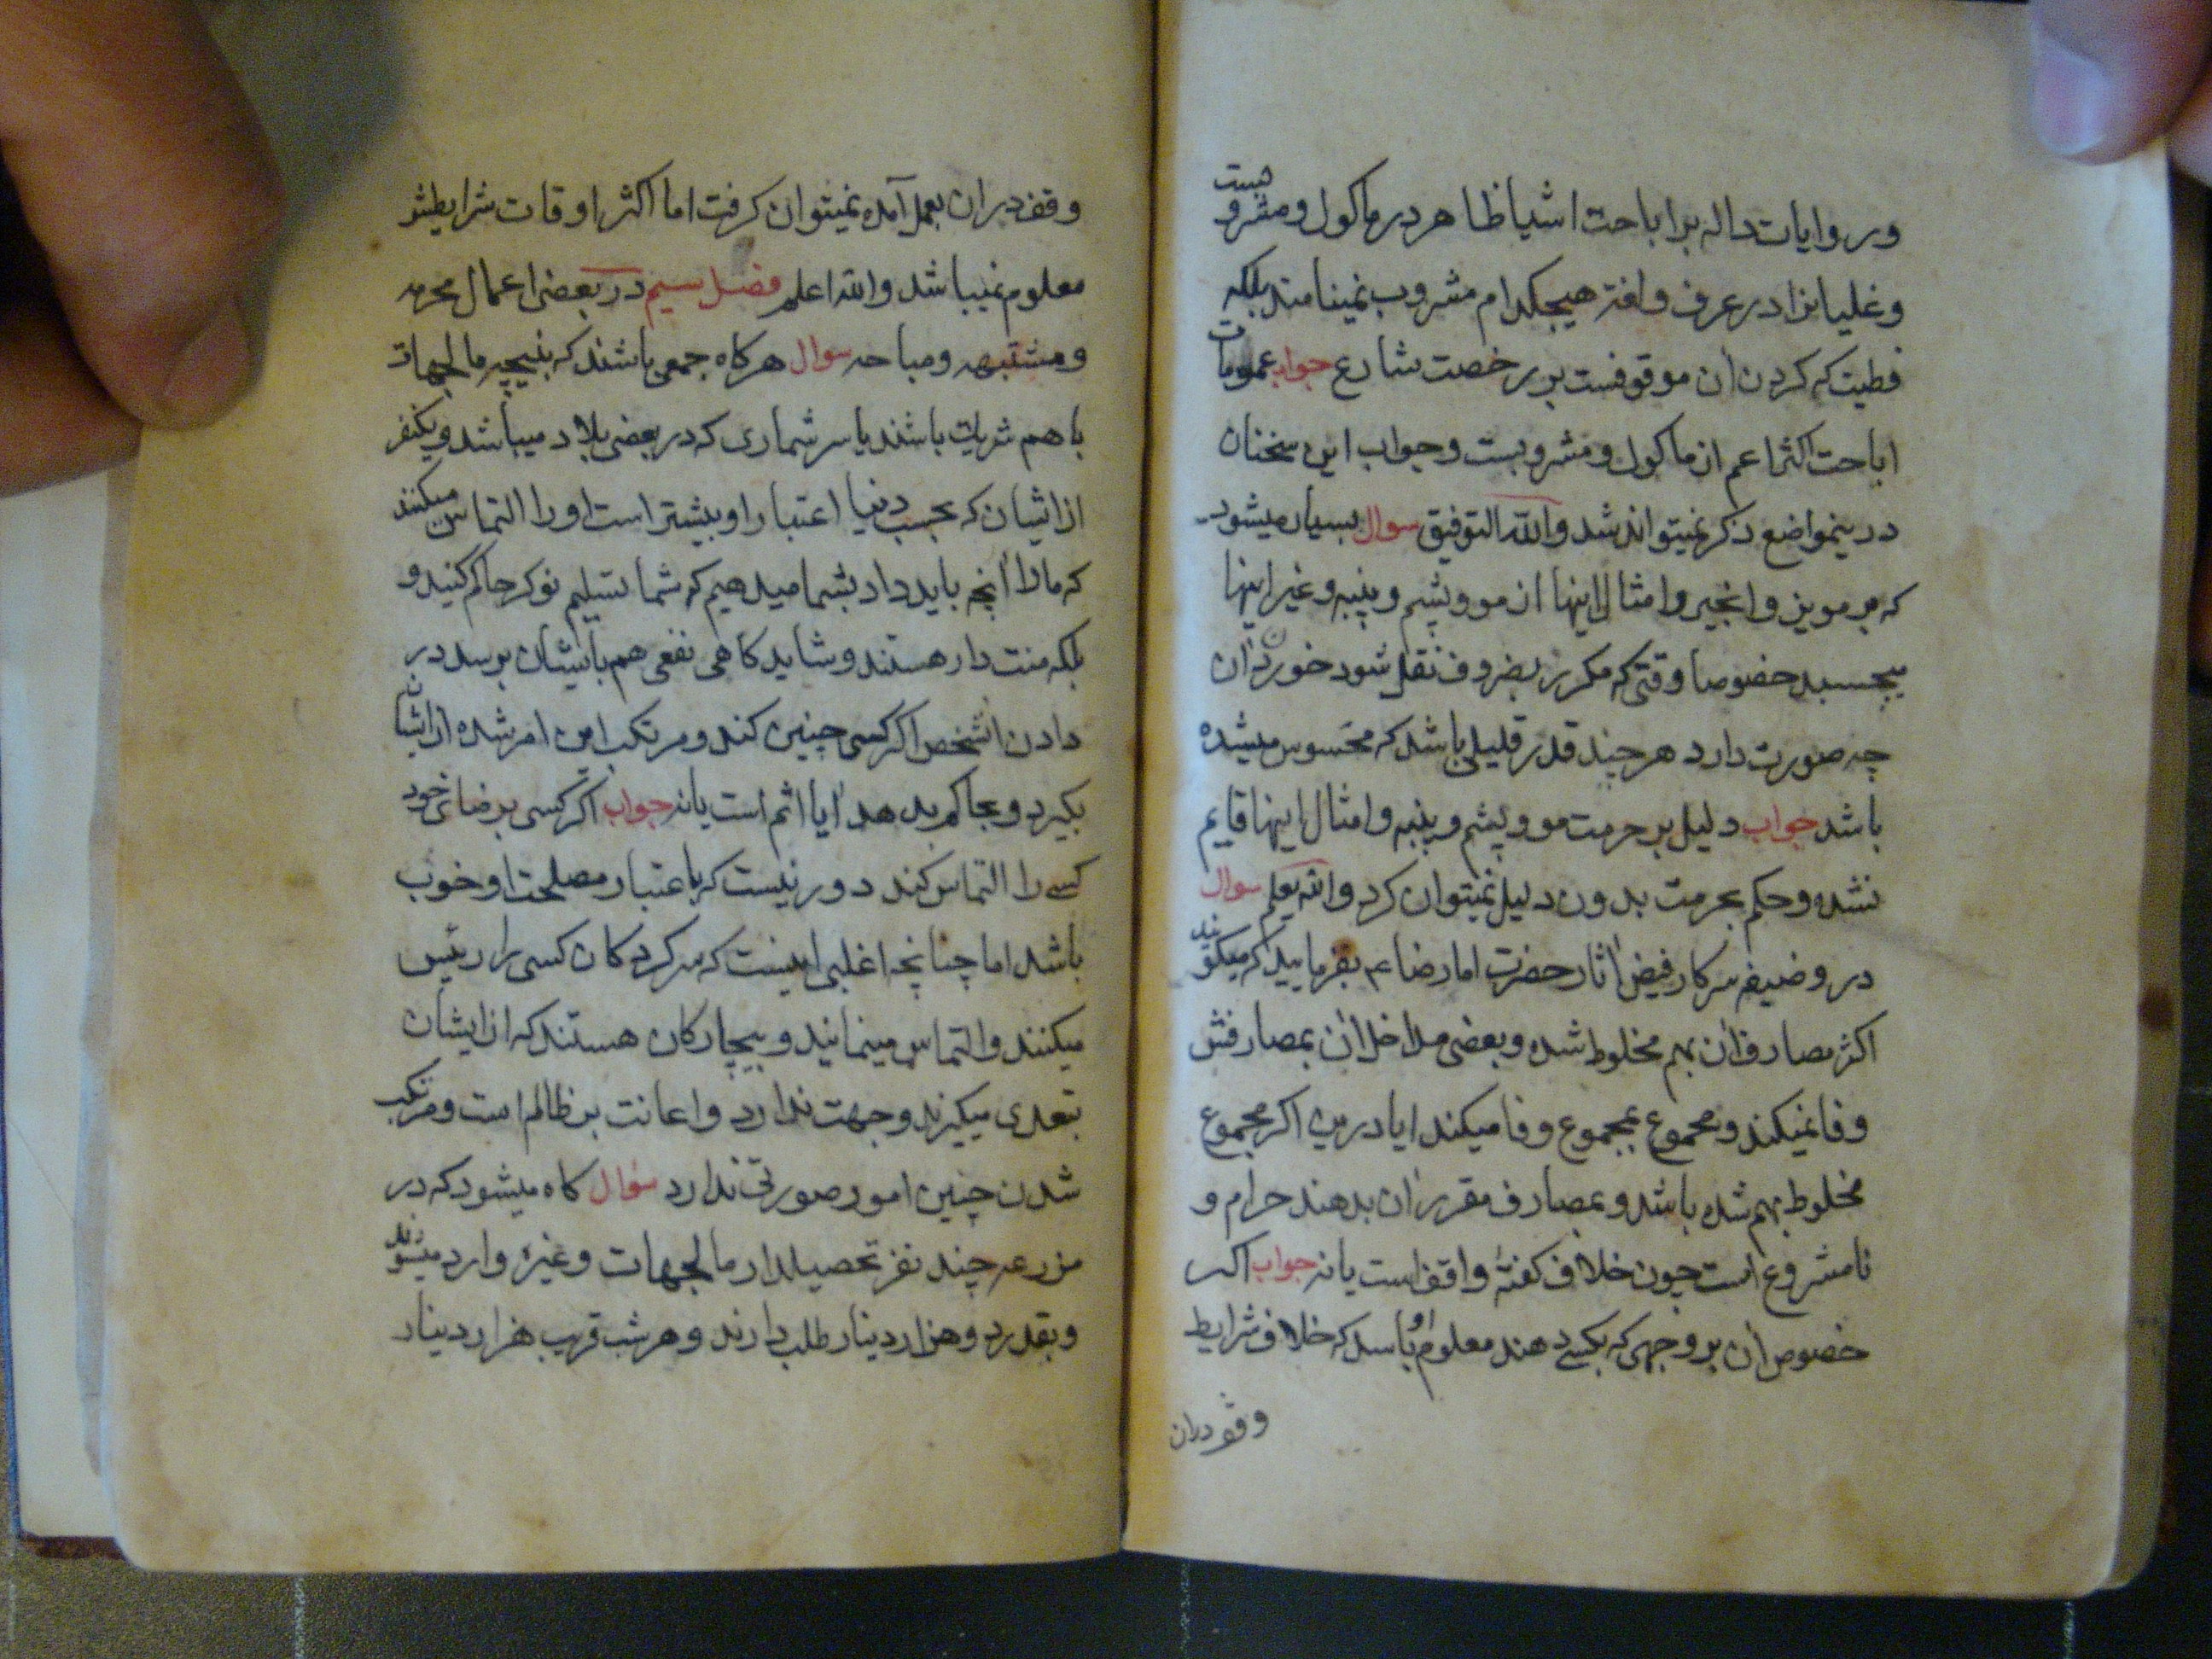 وروایات داله بر اباحت اشیا ظاهر در ماکول و مشروبست
و غلیانرا در عرف و لغة هیچکدام مشروب نمینامند بلکه
فطیت که کردن آن موقوفست بر رخصت شارع جواب عمومات
اباحت اکثر اعم از ماکول و مشروبست و جواب این سخنان
درینمواضع ذکر نمیتواند شد والله التوفیق سوال بسیار میشود
که بر مویز و انجیر و امثال اینها از مو و پشم و پنبه و غیر اینها
میچسبد خصوصا وقتی که مکرر بظروف نقل شود خوردن آن
چه صورت دارد هر چند قدر قلیلی باشد که محسوس میشده
باشد جواب دلیل بر حرمت مو و پشم و پنبه و امثال اینها قایم
نشده و حکم بحرمت بدون دلیل نمیتوان کرد والله یعلم سوال
در وظیفه سرکار فیض آثار حضرت امام رضا ع بفرمایید که میکویند
اکثر مصارف آن بهم مخلوط شده و بعضی مداخل آن بمصارفش
وفا نمیکند و مجموع بمجموع وفا میکند ایا درین اکر مجموع
مخلوط بهم شده باشد و بمصارف مقرر آن بدهند حرام و
نامشروع است چون خلاف کفتهٔ واقف است یا نه جواب اکر
خصوص آن بر وجهی که بکسی دهند معلوم او باسد که خلاف شرایط
وقف دران
وقف دران بعمل آمده نمیتوان کرفت اما اکثر اوقات شرایطش
معلوم نمیباشد والله اعلم فصل سیم در بعضی اعمال محرمه
و مشتبهه و مباحه سوال هرکاه جمعی باشند که بنیچه مالجهات
با هم شریک باشند یا سرشماری که در بعضی بلاد میباشد و یکنفر
از ایشان که بحسب دنیا اعتبار او بیشتر است او را التماس میکنند
که ما را آنچه باید داد بشما میدهیم که شما تسلیم نوکر حاکم کنید و
بلکه منت دار هستند و شاید کاهی نفعی هم بایشان برسد در
دادن انشخص اکر کسی چنین کند و مرتکب این امر شده از ایشان
بکیرد و بحاکم بدهد آیا اثم است یا نه جواب اکر کسی برضای خود
کسی را التماس کند دور نیست که باعتبار مصلحت او خوب
باشد اما چنانچه اغلبی اینست که سرکردکان کسی را رئیس
میکنند و التماس مینمانید و بیچارکان هستند که از ایشان
بتعدی میکیرند وجهت ندارد و اعانت بر ظالم است و مرتکب
شدن چنین امور صورتی ندارد سوال کاه میشود که در
مزرعه چند نفر تحصیلدار مالجهات و غیره وارد میشوند
و بقدر دو هزار دینار طلب دارند و هر شب قریب هزار دینار